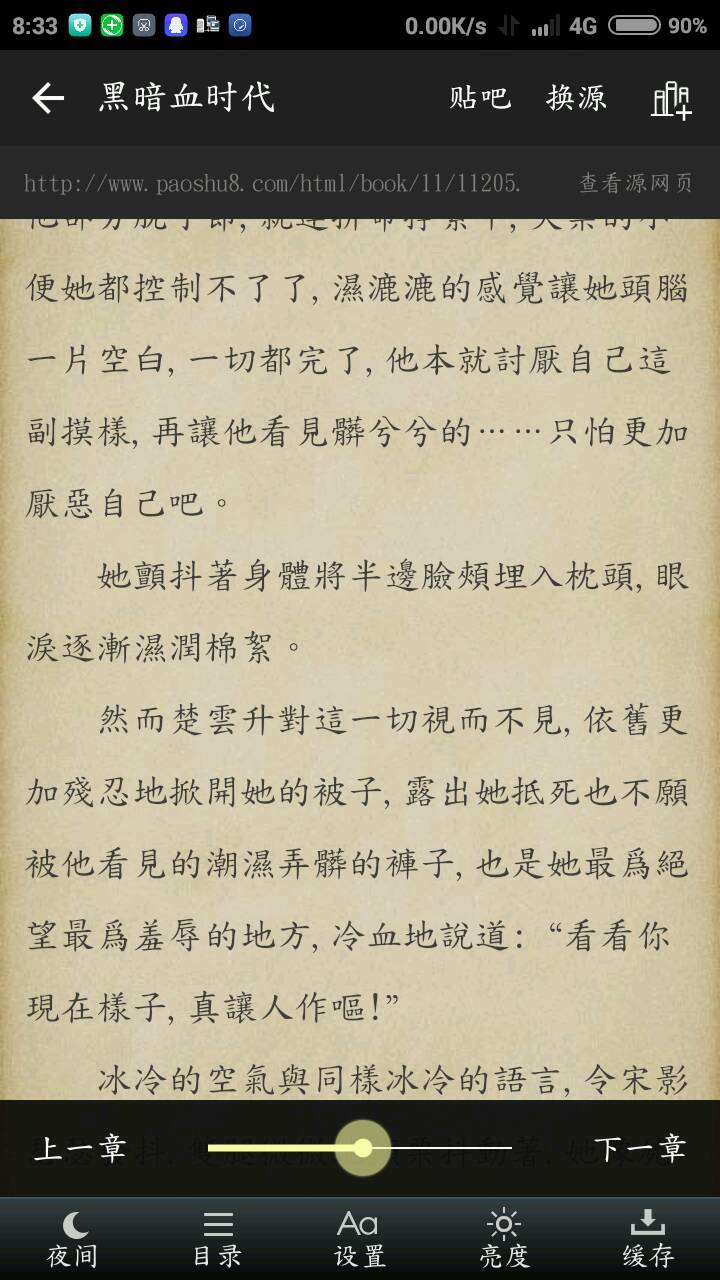 8:33 0.00K/s 4G 90%
黑暗血时代 贴吧 换源
http://www.paoshu8.com/html/book/11/11205. 查看源网页
便她都控制不了了, 濕漉漉的感覺讓她頭腦
一片空白, 一切都完了, 他本就討厭自己這
副摸樣, 再讓他看見髒兮兮的……只怕更加
厭惡自己吧。
她顫抖著身體將半邊臉頰埋入枕頭, 眼
淚逐漸濕潤棉絮。
然而楚雲升對這一切視而不見, 依舊更
加殘忍地掀開她的被子, 露出她抵死也不願
被他看見的潮濕弄髒的褲子, 也是她最爲絕
望最爲羞辱的地方, 冷血地說道: “看看你
現在樣子, 真讓人作嘔!”
冰冷的空氣與同樣冰冷的語言, 令宋影
上一章 下一章
夜间 目录 Aa 设置 亮度 缓存